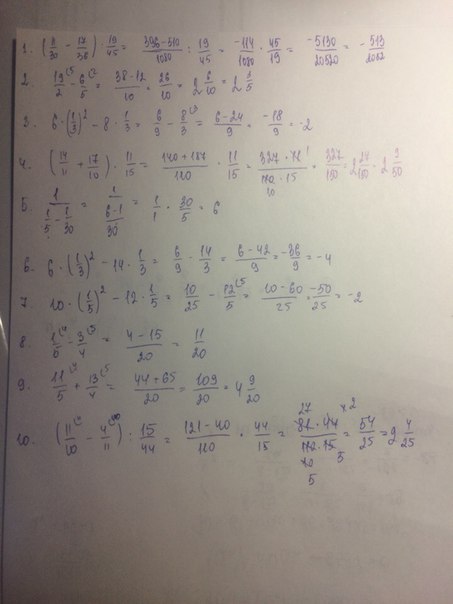 1. (11/30 - 17/36) : 19/45 = 396-510/1080 : 19/45 = -114/1080 · 45/19 = -5130/20520 = -513/2052
2. 19/2 - 6/5 = 38-12/10 = 26/10 = 2 6/10 = 2 3/5
3. 6·(1/3)² - 8·1/3 = 6/9 - 8/3 = 6-24/9 = -18/9 = -2
4. (14/11 + 17/10) · 11/15 = 140+187/110 · 11/15 = 327·11/110·15 = 327/150 = 2 27/150 = 2 9/50
5. 1/(1/5 - 1/30) = 1/(6-1/30) = 1/1 · 30/5 = 6
6. 6·(1/3)² - 14·1/3 = 6/9 - 14/3 = 6-42/9 = -36/9 = -4
7 10·(1/5)² - 12·1/5 = 10/25 - 12/5 = 10-60/25 = -50/25 = -2
8. 1/5 - 3/4 = 4-15/20 = 11/20
9. 11/5 + 13/4 = 44+65/20 = 109/20 = 4 9/20
10. (11/10 - 4/11) : 15/44 = 121-40/110 · 44/15 = = 54/25 = 2 4/25